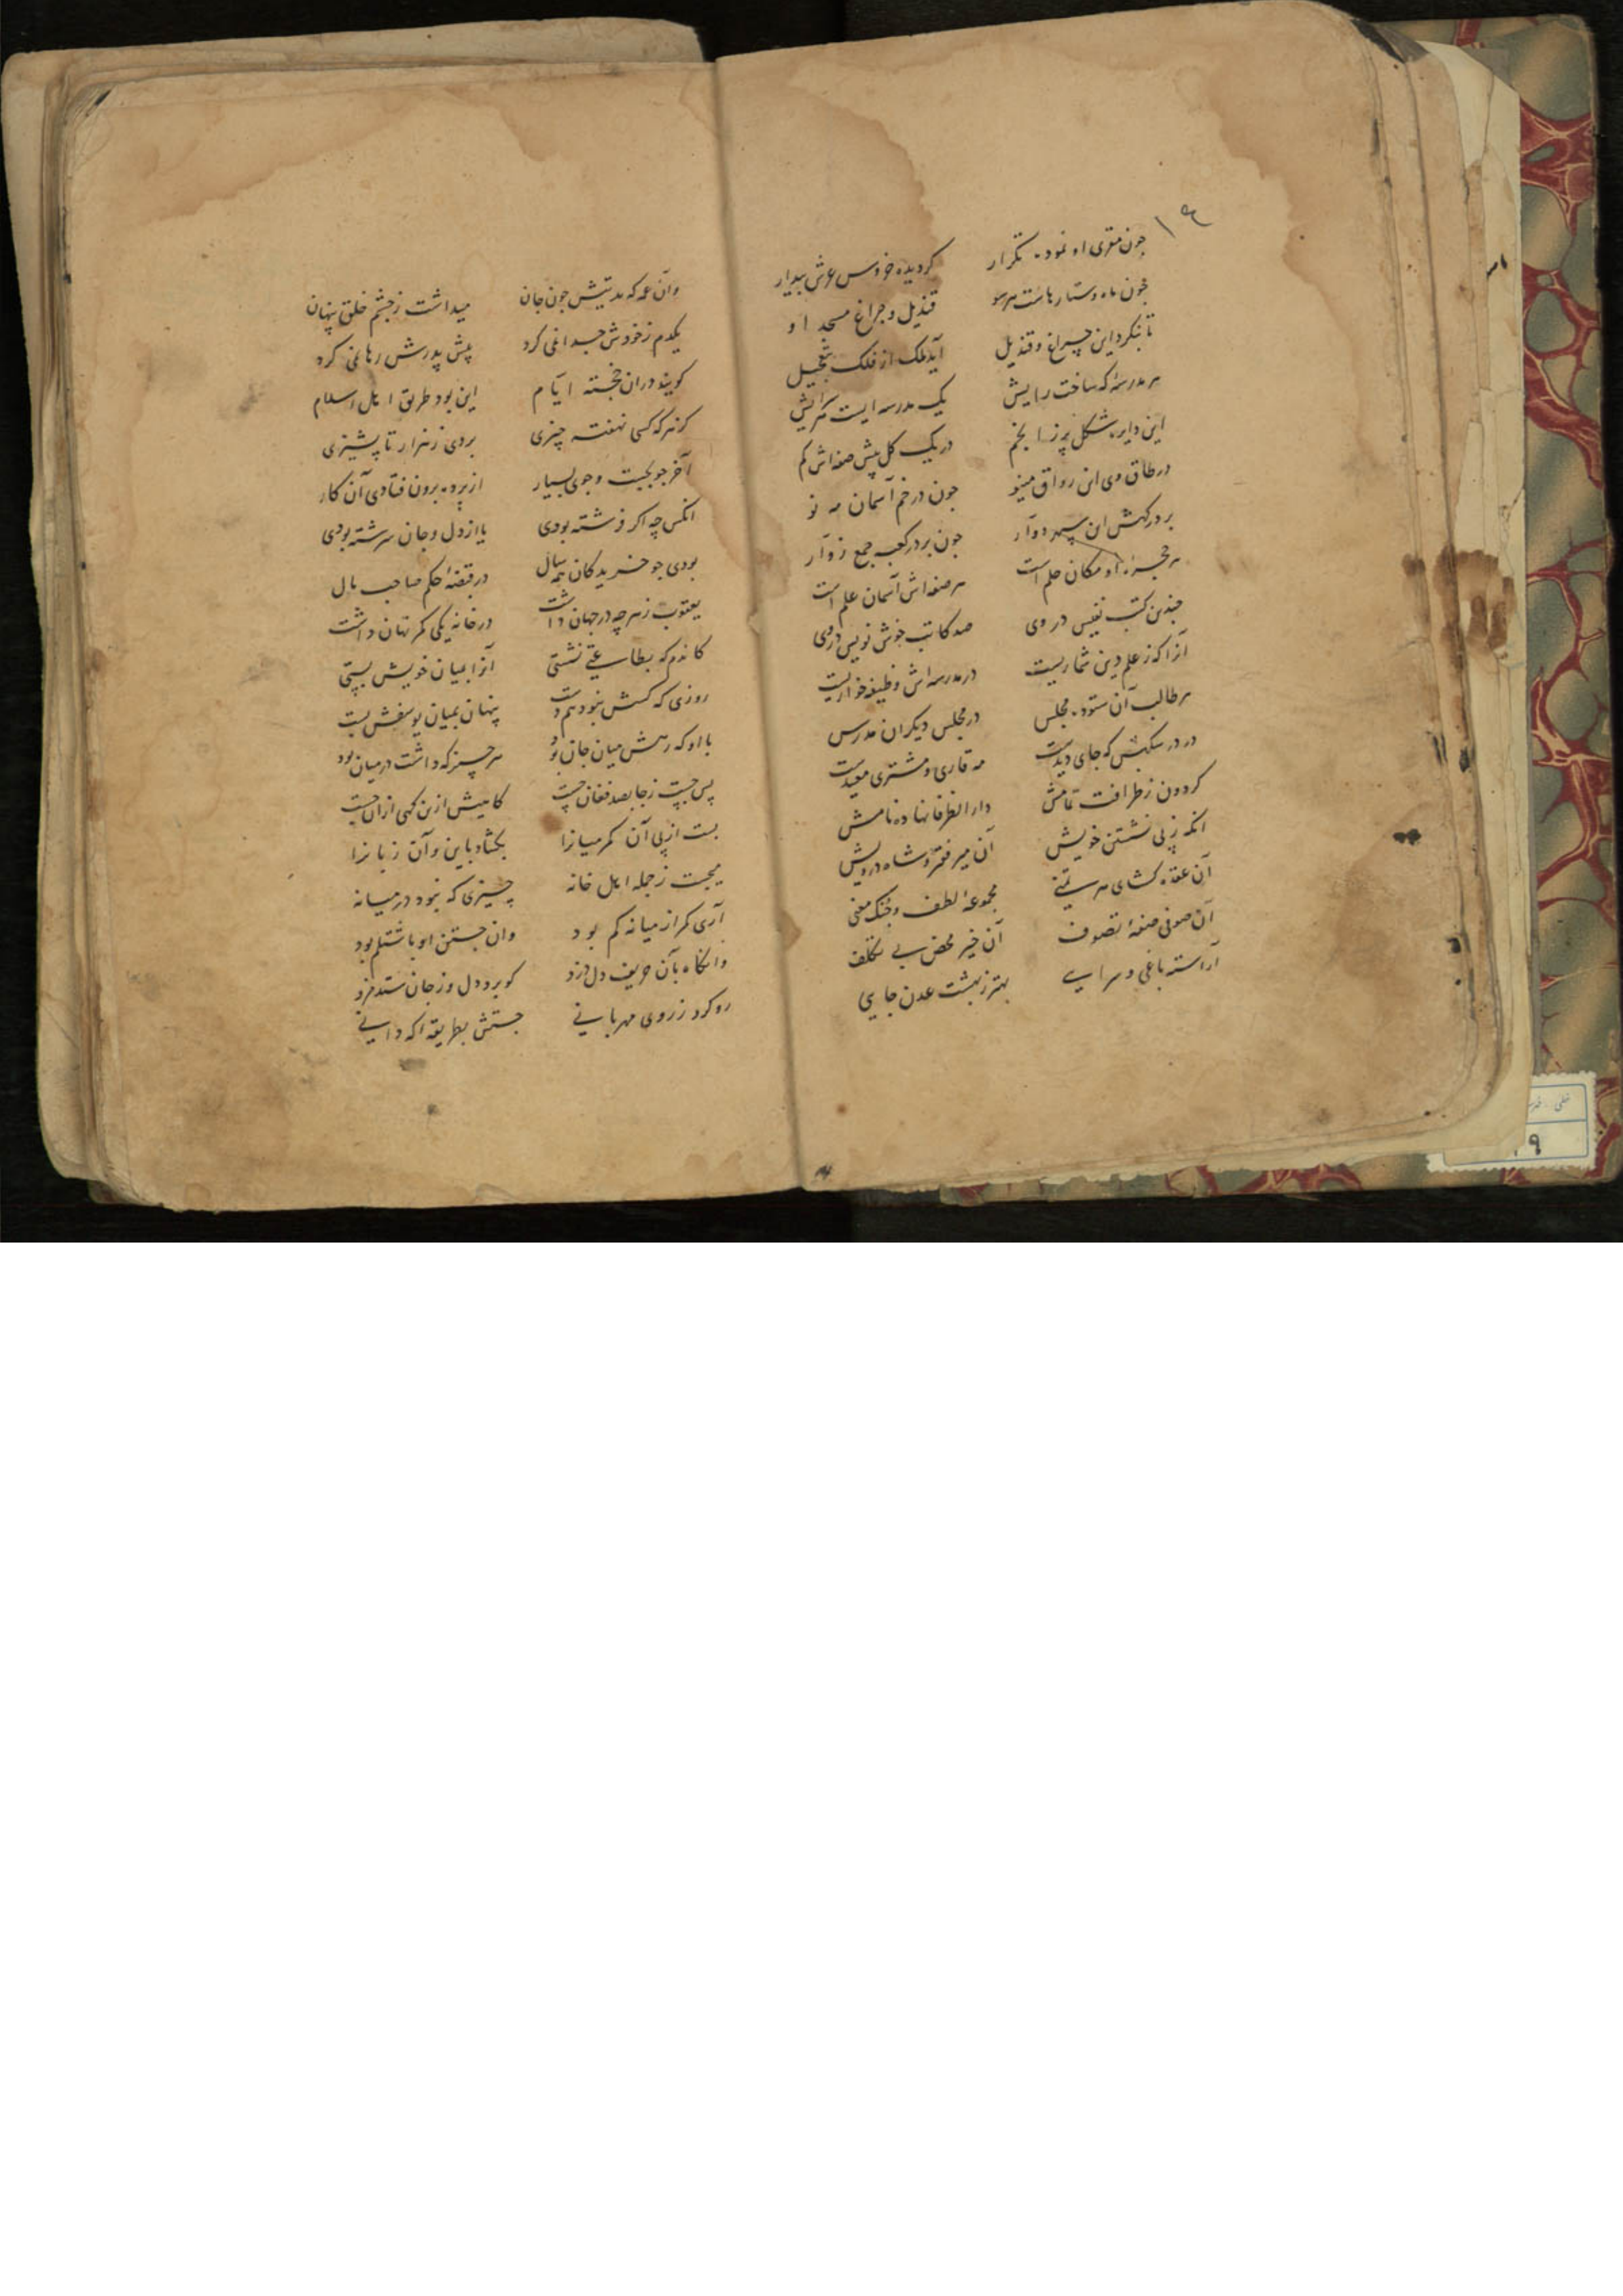 ۱۶
چون مقری او نموده تکرار کردیده خروس عرش بیدار
چون ماه و ستارهاست هرسو قندیل و چراغ مسجد او
تا بنکرد این چراغ و قندیل آید ملک از فلک بتعجیل
هر مدرسهٔ که ساخت رایش یک مدرسه ایست هر سرایش
این دایره شکل پر ز انجم در یک کل پیش صفه اش کم
در طاق وی این رواق مینو چون در خم آسمان مه نو
بر درکهش این سپهر دوار چون بر در کعبه جمع زوار
هر حجرهٔ او مکان حلم است هر صفه اش آسمان علم است
چندین کتب نفیس در وی صد کاتب خوش نویس در وی
آنرا که ز علم دین شماریست در مدرسه اش وظیفه خواریست
هر طالب آن ستوده مجلس در مجلس دیکران مدرس
در درسکهش که جای دیدست مه قاری و مشتری معیدست
کردون ز ظرافت تمامش دار الظرفا نهاده نامش
انکه ز پی نشستن خویش آن میر فقر و شاه درویش
آن عقده کشای هر مجموعهٔ لطف و جنک معنی
آن صوفی صفهٔ تصوف آن خیر محض بی تکلف
آراسته باغی و سرایی بهتر ز بهشت عدن جایی
وآن عمه که مدتیش چون جان میداشت ز چشم خلق پنهان
یکدم ز خودش جدائی کرد پیش پدرش رها نمی کرد
کویند در آن خجسته ایام این بود طریق اهل اسلام
کز هر که کسی نهفته چیزی بردی ز هزار تا پشیزی
آخر چو بجست و جوی بسیار از پرده برون فتادی آن کار
انکس چه اکر فرشته بودی یا از دل و جان سرشته بودی
بودی چو خریدکان همه سال در قبضهٔ حکم صاحب مال
یعقوب ز هر چه در جهان داشت در خانه یکی کمر نهان داشت
کاندم که بطاعتی نشستی آنرا بمیان خویش بستی
روزی که کسش نبود همدست پنهان بمیان یوسفش بست
با او که رهش میان جان بود هر چیز که داشت در میان بود
پس جست ز جا بصد فغان چست
بست از پی آن کمر میانرا بکشاد باین و آن زبانرا
میجست ز جمله اهل خانه چیزی که نبود در میانه
آری کمر از میانه کم بود وان جستن او باشتلم بود
وانکاه بآن حریف دل دزد کو برد دل و ز جان ستد مزد
رو کرد ز روی مهربانی جستش بطریقه اکه دانی